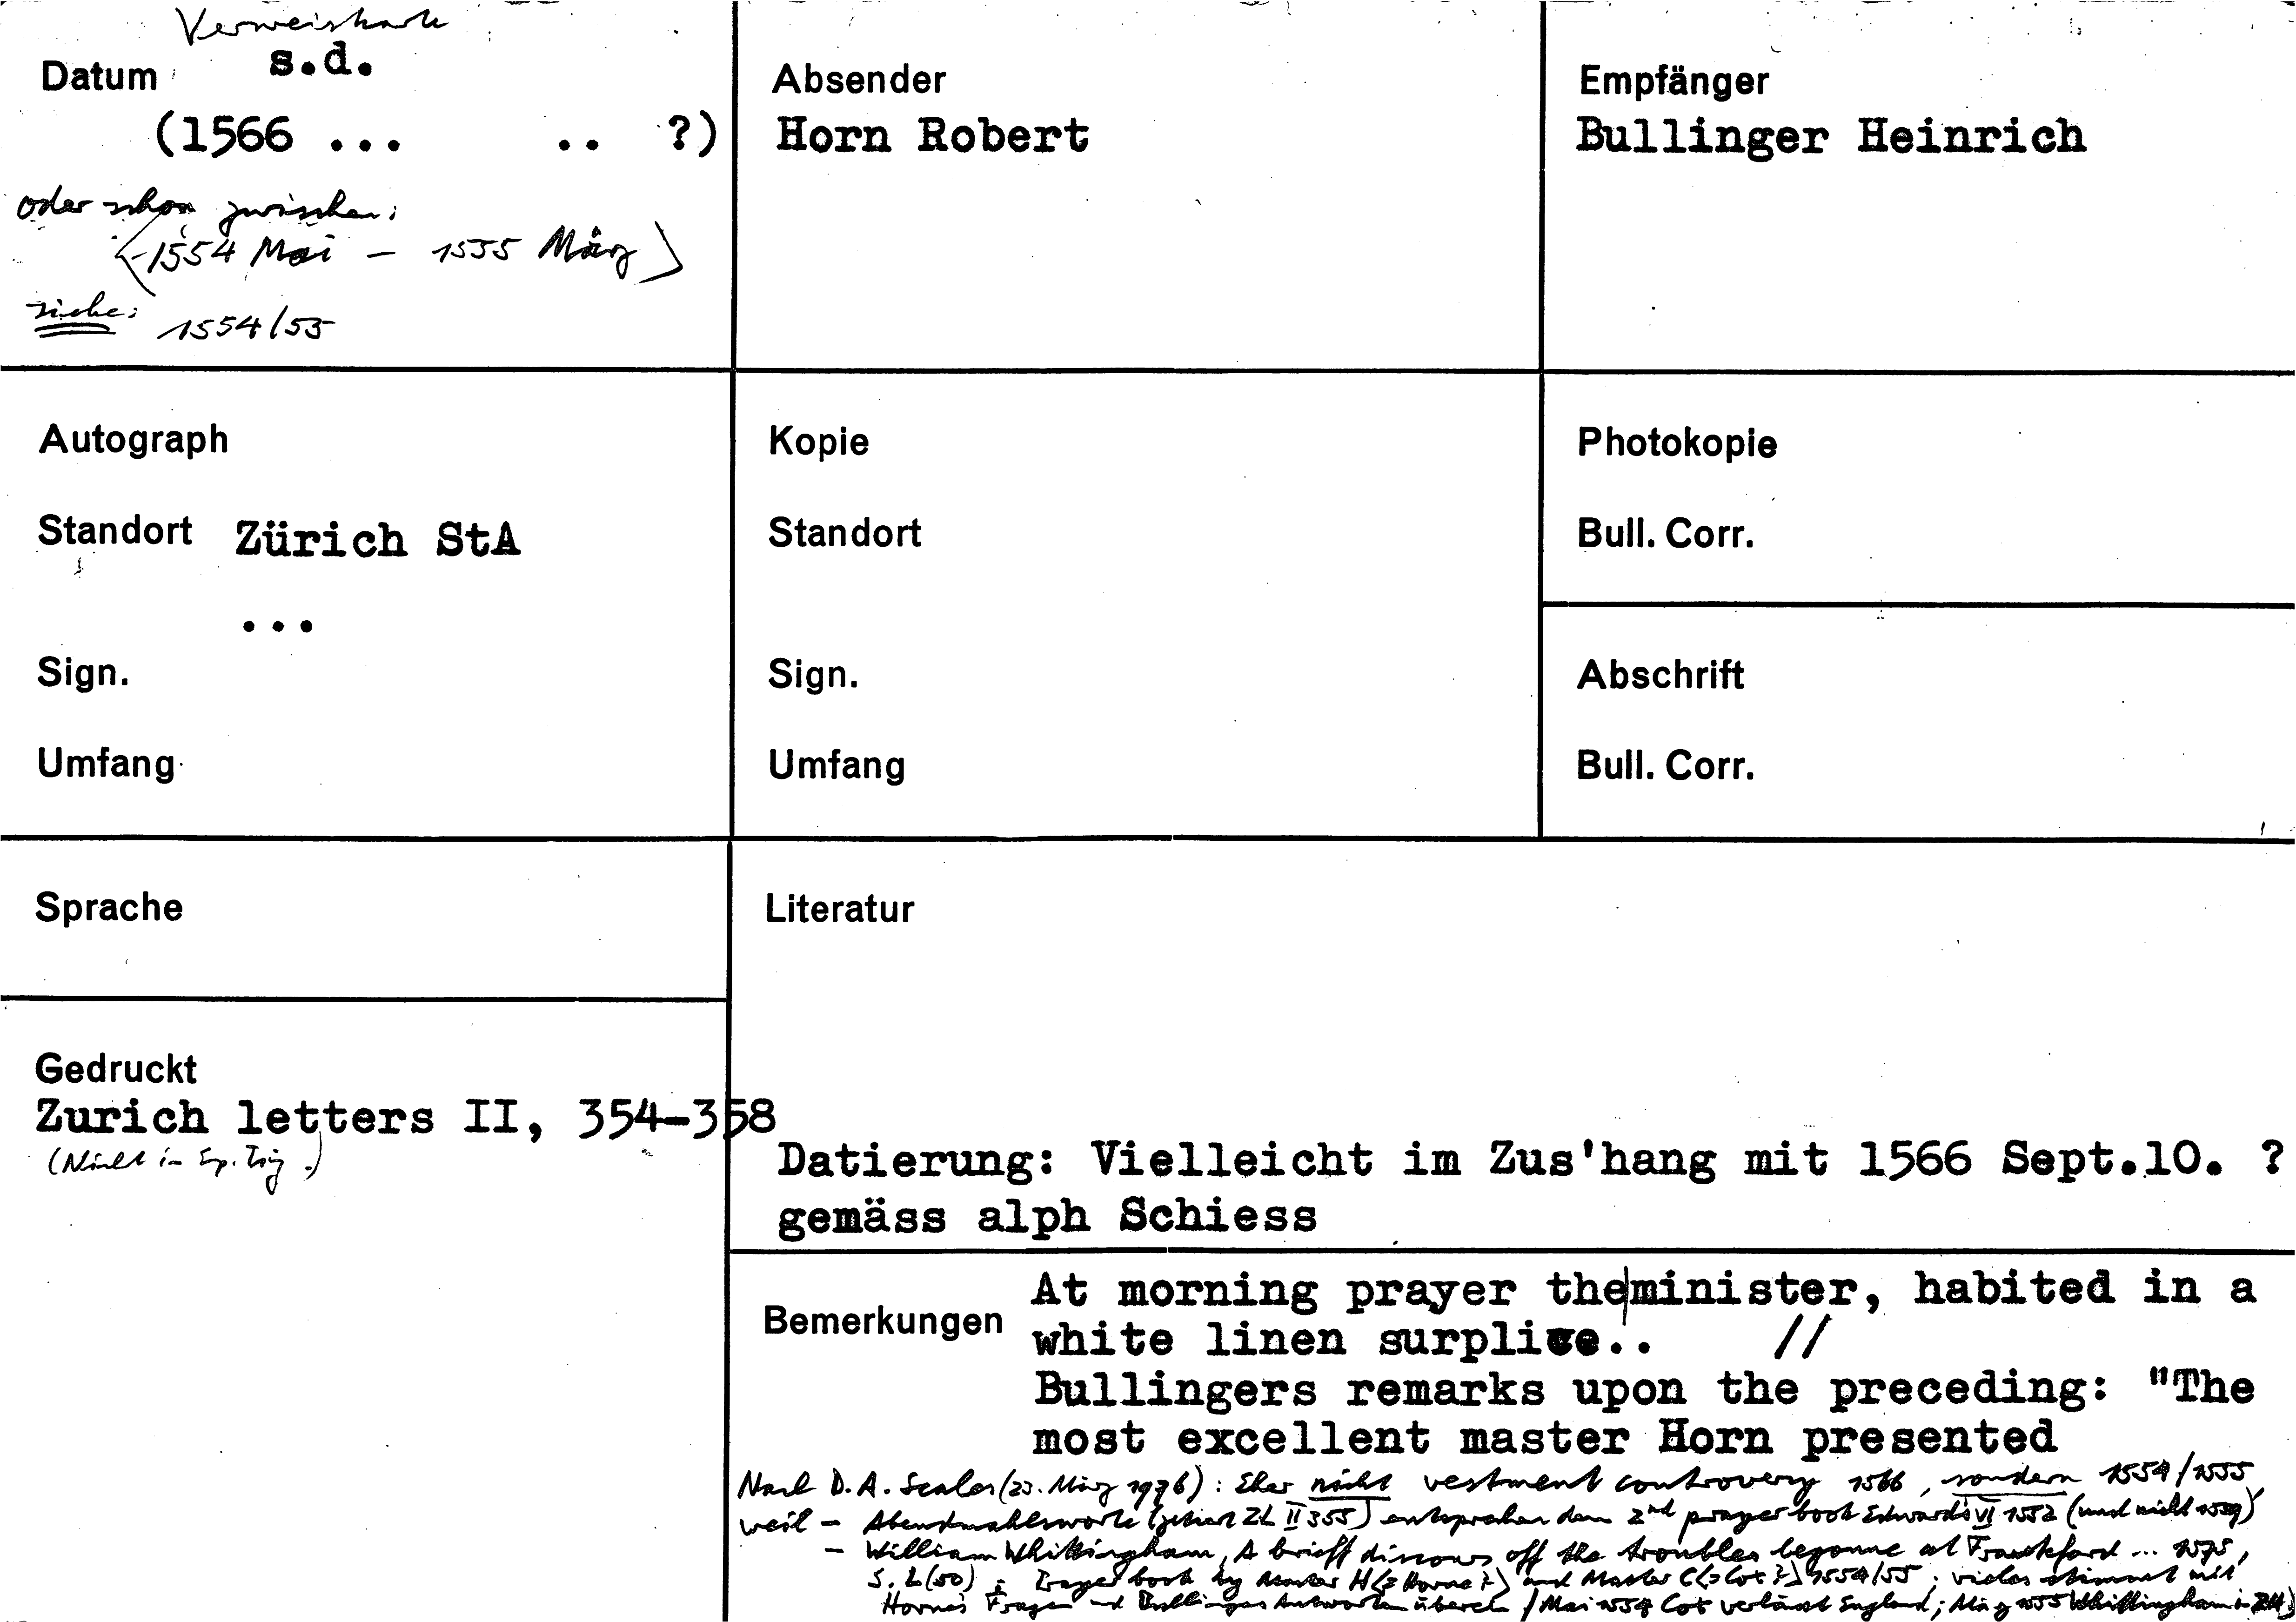 Verweiskarte
Datum s.d.
(1566 ... .. ?)
oder schon zwischen:
<1554 Mai – 1555 März>
siehe: 1554/55
Absender
Horn Robert
Empfänger
Bullinger Heinrich
Autograph
Standort Zürich StA
...
Sign.
Umfang
Kopie
Standort
Sign.
Umfang
Photokopie
Bull. Corr.
Abschrift
Bull. Corr.
Sprache
Gedruckt
Zurich letters II, 354-358
(Nicht in Ep. Tig.)
Literatur
Datierung: Vielleicht im Zus'hang mit 1566 Sept.10. ?
gemäss alph Schiess
Bemerkungen
At morning prayer the|minister, habited in a
white linen surplice.. //
Bullingers remarks upon the preceding: "The
most excellent master Horn presented
Nach D. A. Scales (23. März 1976): Eher nicht vestment controversy 1566, sondern 1554/1555,
weil – Abendmahlsworte (zitiert ZL II 355) entsprechen dem 2nd prayer book Edwards VI 1552 (und nicht 1559)
– William Whittingham, A brieff discours off the troubles begonne at Franckford ... 1575,
S. L(50): Prayer book by Master H<=Horne?> and Master C<=Cox?> 1554/55; vieles stimmt mit
Horne's Fragen und Bullingers Antworten überein / Mai 1554 Cox verlässt England; März 1555 Whittingham in ZH.